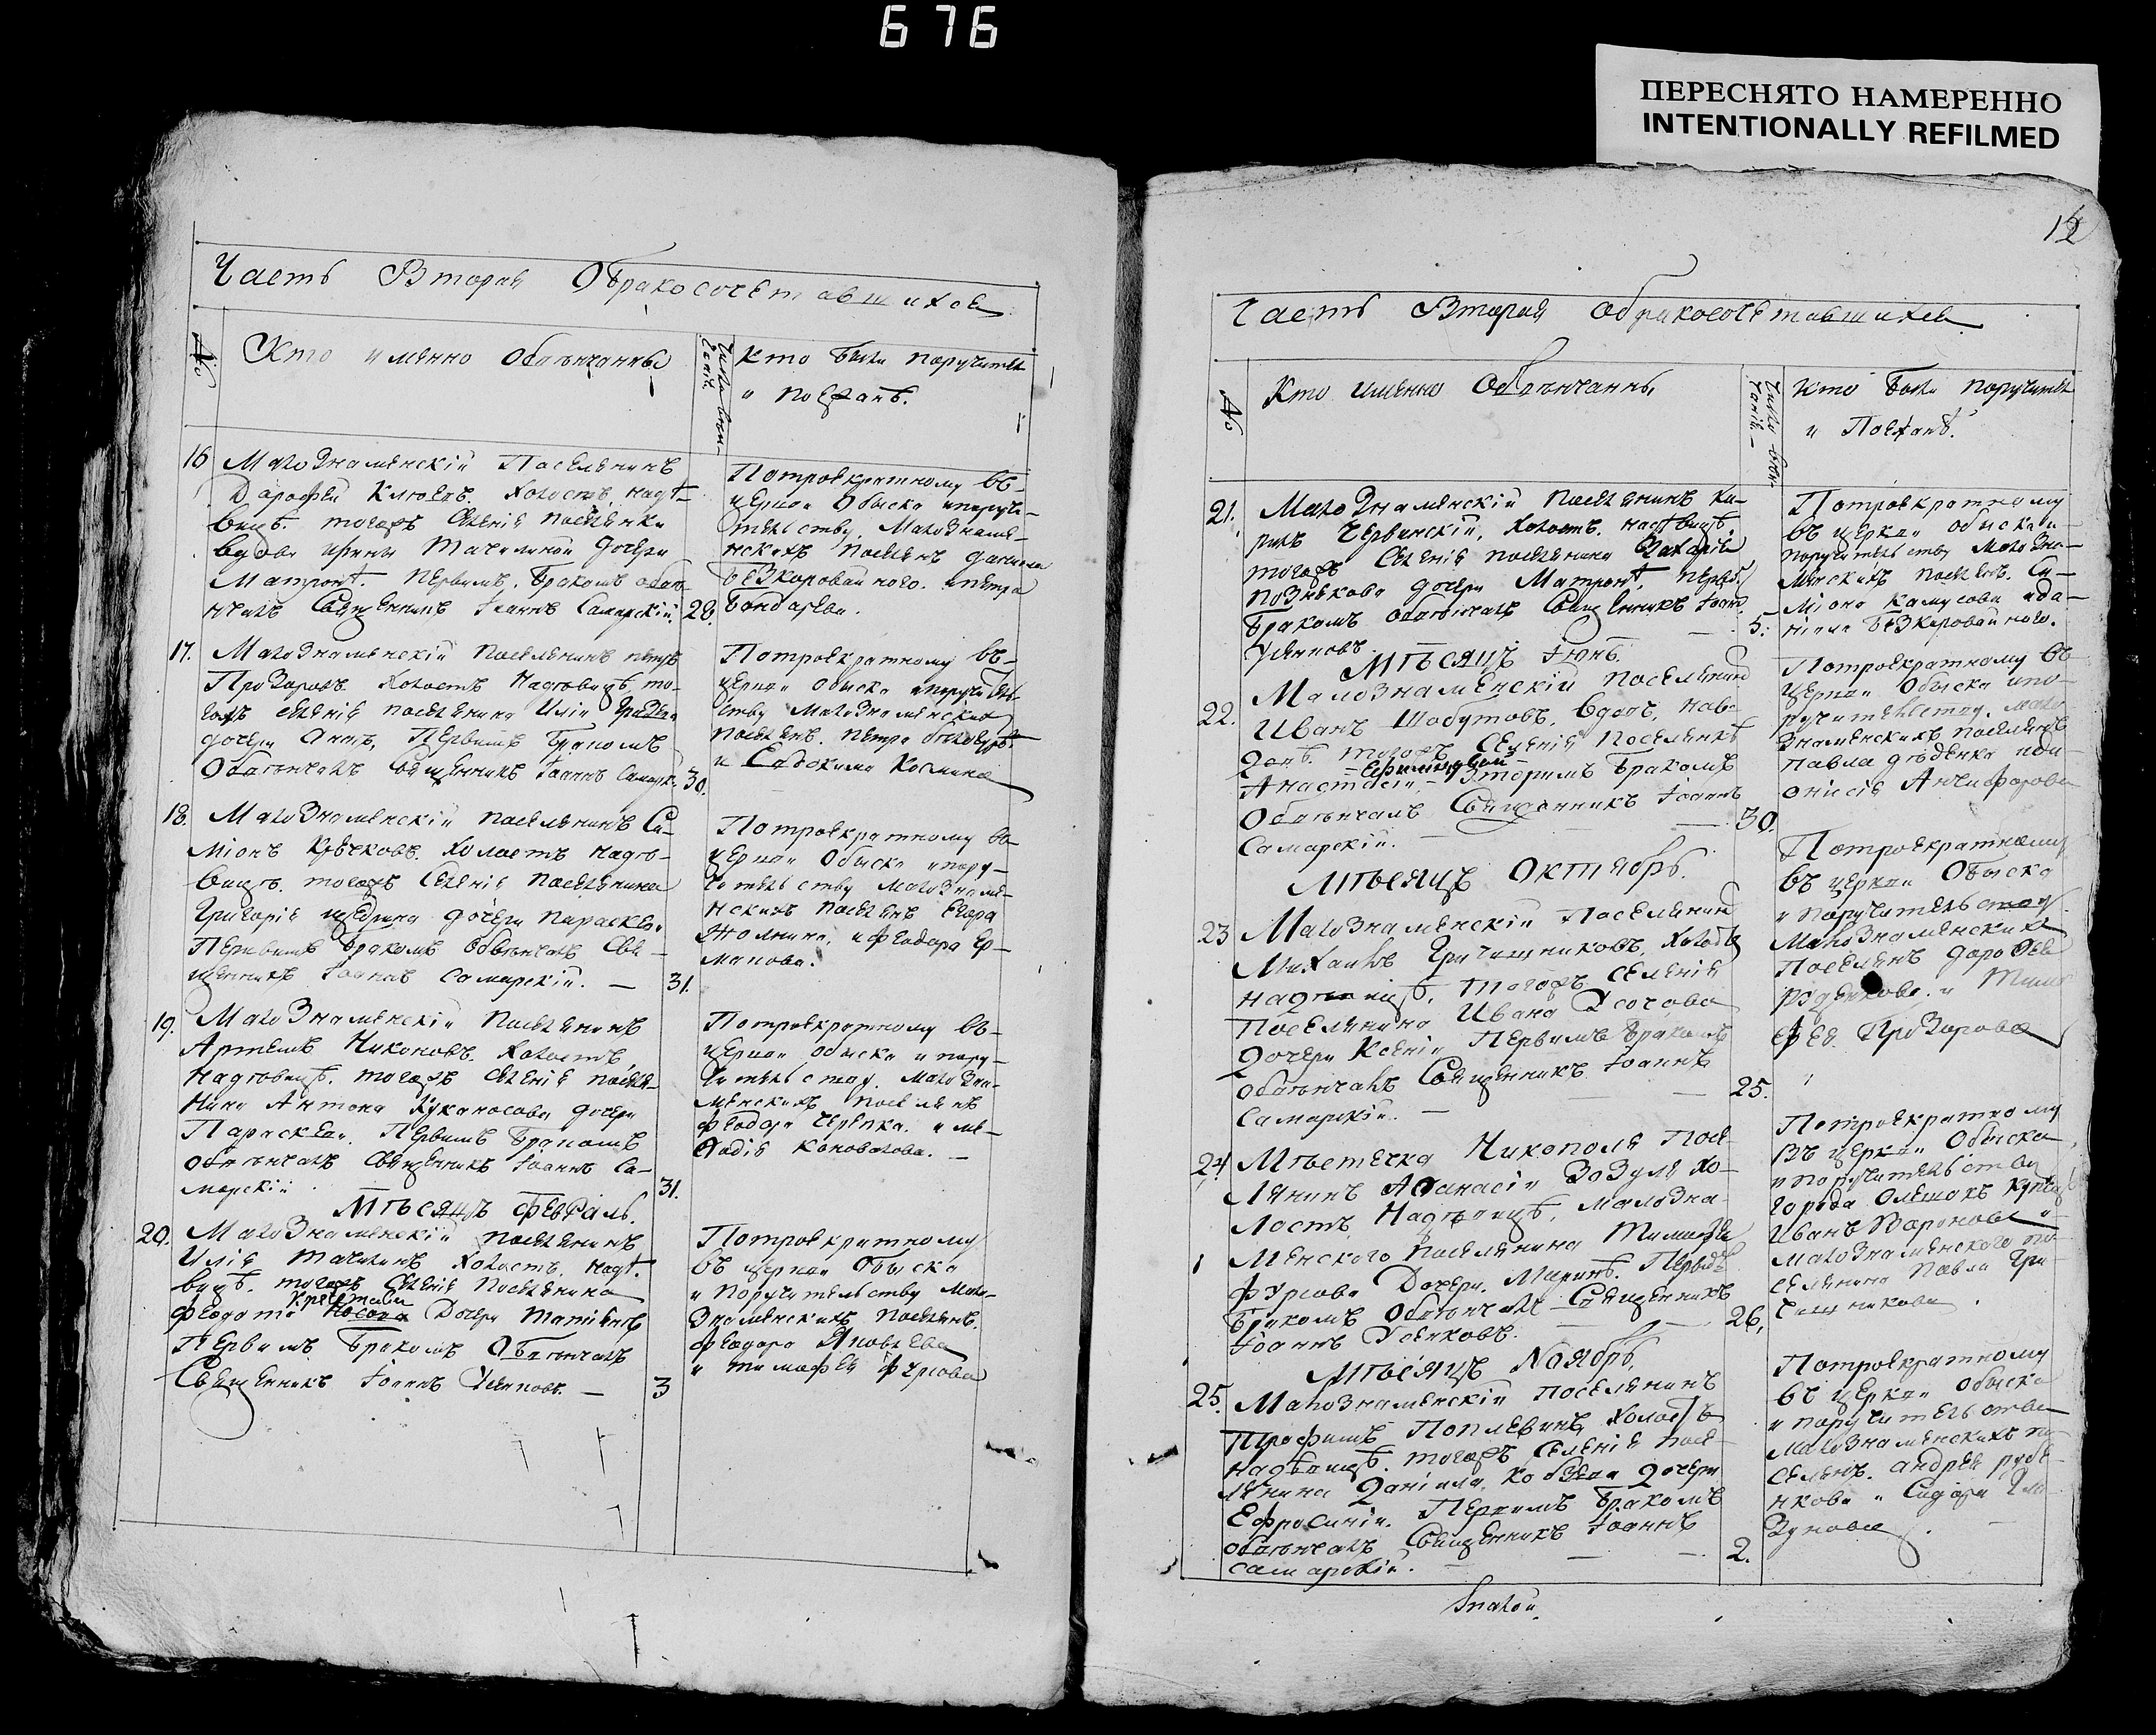 676
ПЕРЕСНЯТО НАМЕРЕННО
INTENTIONALLY REFILMED
Часть Вторая Обракосочетавшихся
№
Кто имянно Обвѣнчанны
Кто были поручители
и поѣзжанѣ.
16 Малознамѣнскій Поселянинъ
Дарофей Клюевъ. Холостъ, надѣ-
вицѣ. тогожъ селенія поселянки
вдовы Тачилиной дочери
Матронѣ. первымъ. бракомъ обвѣ-
нчалъ Священникъ Іоаннъ Самарскій. 28.
Потроекратному въ-
церкви Обыску ипоручи-
тельству. Малознаме-
нскихъ поселянъ данила
безкоровайного. ипетра
бондарева.
17. Малознаменскій поселянинъ петръ
Прозоровъ. холостъ надѣвицѣ, то-
гожъ селенія поселянина Иліи
дочери Аннѣ, Первымъ бракомъ
Обвѣнчалъ священникъ Іоаннъ Самарск. 30.
Потроекратному въ-
церкви обыску ипоручитель-
ству Малознаменскихъ
поселянъ. петра
и Евдокима Космина
18. Малознаменскій поселянинъ Си-
міонъ Крѣчковъ. холостъ надѣ-
вицѣ. тогожъ селенія поселянина
Григорія щедрина дочери параскеви
Первымъ бракомъ обвѣнчалъ Свя-
щенникъ Іоаннъ Самарскій. — 31.
Потроекратному въ-
церкви Обыску ипору-
чительству Малознаме-
нскихъ поселянъ Егора
Жолнина, и феодора Ер-
макова.
19. Малознаменскій поселянинъ
Артемъ Никоновъ. холостъ,
надѣвицѣ. тогожъ селенія поселя-
нина Антона Куканосова дочери
Параскеви. Первымъ бракомъ
обвѣнчалъ священникъ Іоаннъ Са-
марскій. 31.
Потроекратному въ-
церкви обыску и пору-
чительству. Малозна-
менскихъ поселянъ
феодора черепка. и ме-
фодія Коновалова. —
Мѣсяцъ февраль.
20. Малознаменскій поселянинъ
Илія Тачилинъ холостъ, надѣ-
вицѣ. тогожъ селенія поселянина
феодота Носова Дочери Татіянѣ
Первымъ бракомъ Обвѣнчалъ
Священникъ Іоаннъ Усиковъ. — 3
Потроекратному
въ церкви Обыску
и поручительству Мало-
знаменскихъ поселянъ.
феодора Яковлева
и тимофея фурсова
12
Часть Вторая Обракосочетавшихся
№
Кто имянно Обвѣнчанны,
Кто были поручители
и Поѣзжанѣ.
21. Малознаменскій поселянинъ Ки-
рилъ Червинскій, холостъ. надѣвицѣ
тогожъ селенія поселянина Захарія
познякова дочери Матронѣ, первы.
бракомъ обвѣнчалъ Священникъ Іоан.
Усиковъ 5.
Потроекратному
въ церкви обыску и
поручительству Малозна-
менскихъ поселянъ. Си-
міона Камусова ида-
ніила безкоровайного.
Мѣсяцъ Іюнь.
22. Малознаменскій поселянинъ
Иванъ Шабутовъ. вдовъ, нав-
довѣ. тогожъ селенія Поселянкѣ
Анастасіи, — Вторымъ бракомъ
Обвѣнчалъ Священникъ Іоаннъ
Самарскій. 30.
Потроекратному въ
церкви Обыску ипо-
ручительству. мало
знаменскихъ поселянъ
павла дѣденка иди-
онисія Анциферова
Мѣсяцъ Октябрь.
23 Малознаменскій Поселянинъ
Михаилъ Гричишниковъ, холостъ
надѣвицѣ, тогожъ селенія
Поселянина Ивана Усачова
дочери Ксеніи Первымъ бракомъ
обвѣнчалъ Священникъ Іоаннъ
Самарскій. — 25.
Потроекратному
въ церкви Обыску
и поручительству
Малознаменскихъ
Поселянъ дорофея
и Тимо-
фея Прозорова
24 Мѣстечка Никополя Посе-
лянинъ Афанасій Зозуля хо-
лостъ, надѣвицѣ, малозна-
менского поселянина Тимофея
фурсова Дочери. Маринѣ. Первымъ
бракомъ Обвѣнчалъ Священникъ
Іоаннъ Усиковъ. 26,
Потроекратному
въ церкви Обыску
и поручительству
города Олешокъ купца
Иванъ Воронова и
малознаменского по-
селянина Павла Гри-
чишникова.
Мѣсяцъ Ноябрь,
25. Малознаменскій поселянинъ
Трофимъ Поплевинъ, холостъ
надѣвицѣ. тогожъ селенія посе-
лянина Даніила, Кобзева дочери
Ефросиніи. Первымъ бракомъ
обвѣнчалъ Священникъ Іоаннъ
самарскій. — 2.
Потроекратному
въ церкви обыску
и поручительству
малознаменскихъ по-
селянъ. андрея рубе-
нкова и Сидора